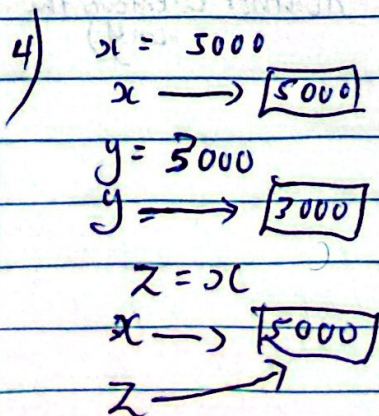 4) x = 5000
x → 5000
y = 3000
y → 3000
z = x
x → 5000
z